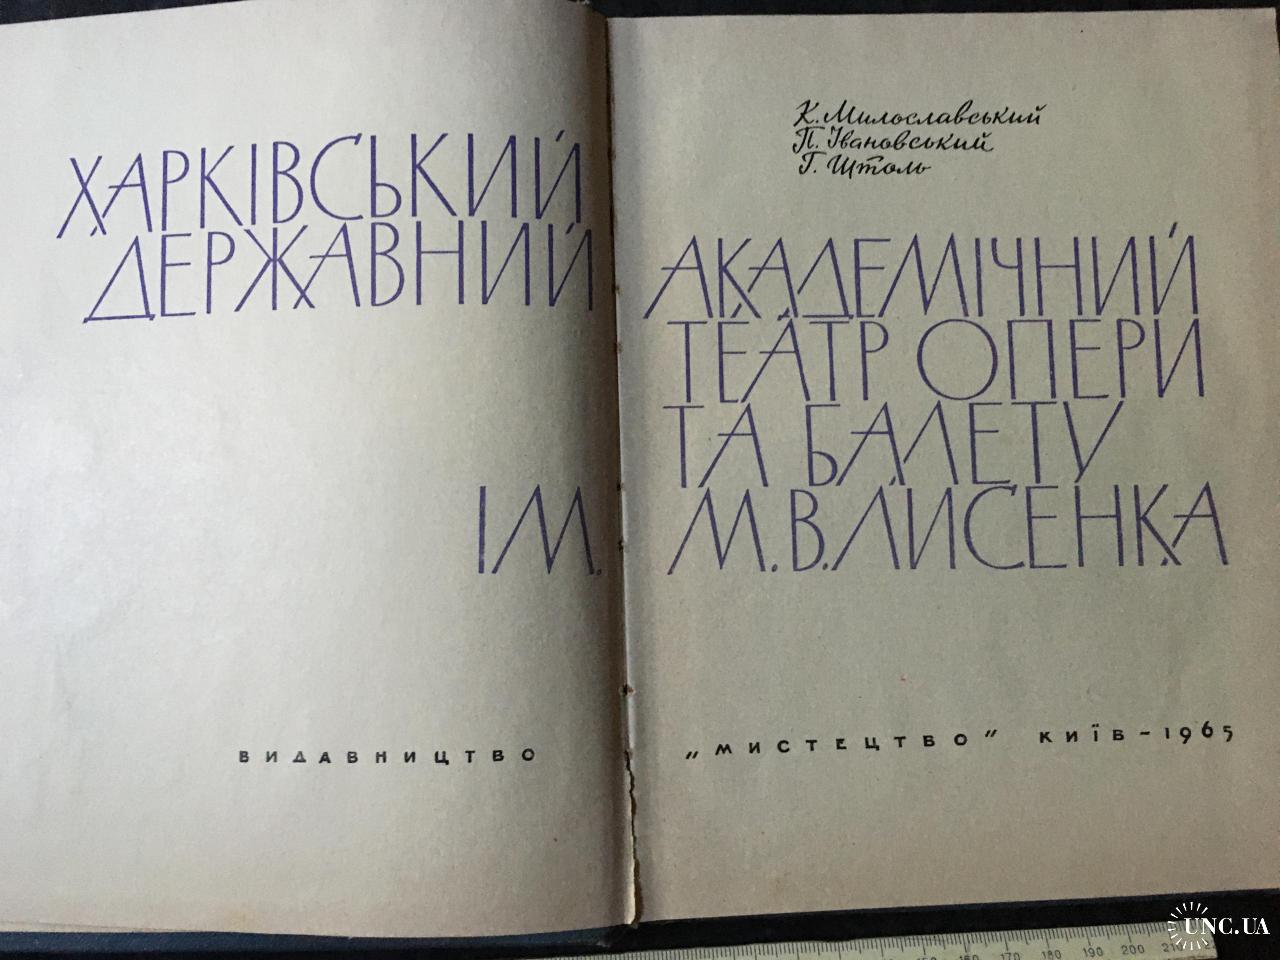 К. Милославський
П. Івановський
Г. Штоль
ХАРКІВСЬКИЙ
ДЕРЖАВНИЙ АКАДЕМІЧНИЙ
ТЕАТР ОПЕРИ
ТА БАЛЕТУ
ІМ. М.В.ЛИСЕНКА
ВИДАВНИЦТВО „МИСТЕЦТВО" КИЇВ - 1965
160 170 180 190 200 210
UNC.UA